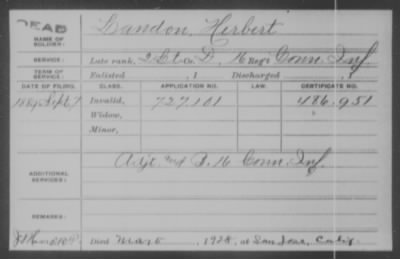 DEAD
NAME OF SOLDIER: Landon, Herbert
SERVICE: Late rank, 2 Lt Co. D, 16 Reg't Conn. Inf.
TERM OF SERVICE: Enlisted , 1 Discharged , 1
DATE OF FILING. CLASS. APPLICATION NO. LAW. CERTIFICATE NO.
1889 Sept 7 Invalid, 727,101 486,951
Widow,
Minor,
ADDITIONAL SERVICES: Adjt. and 16 Conn. Inf.
REMARKS:
Died Mar 5, 1928, at San Jose, Calif.